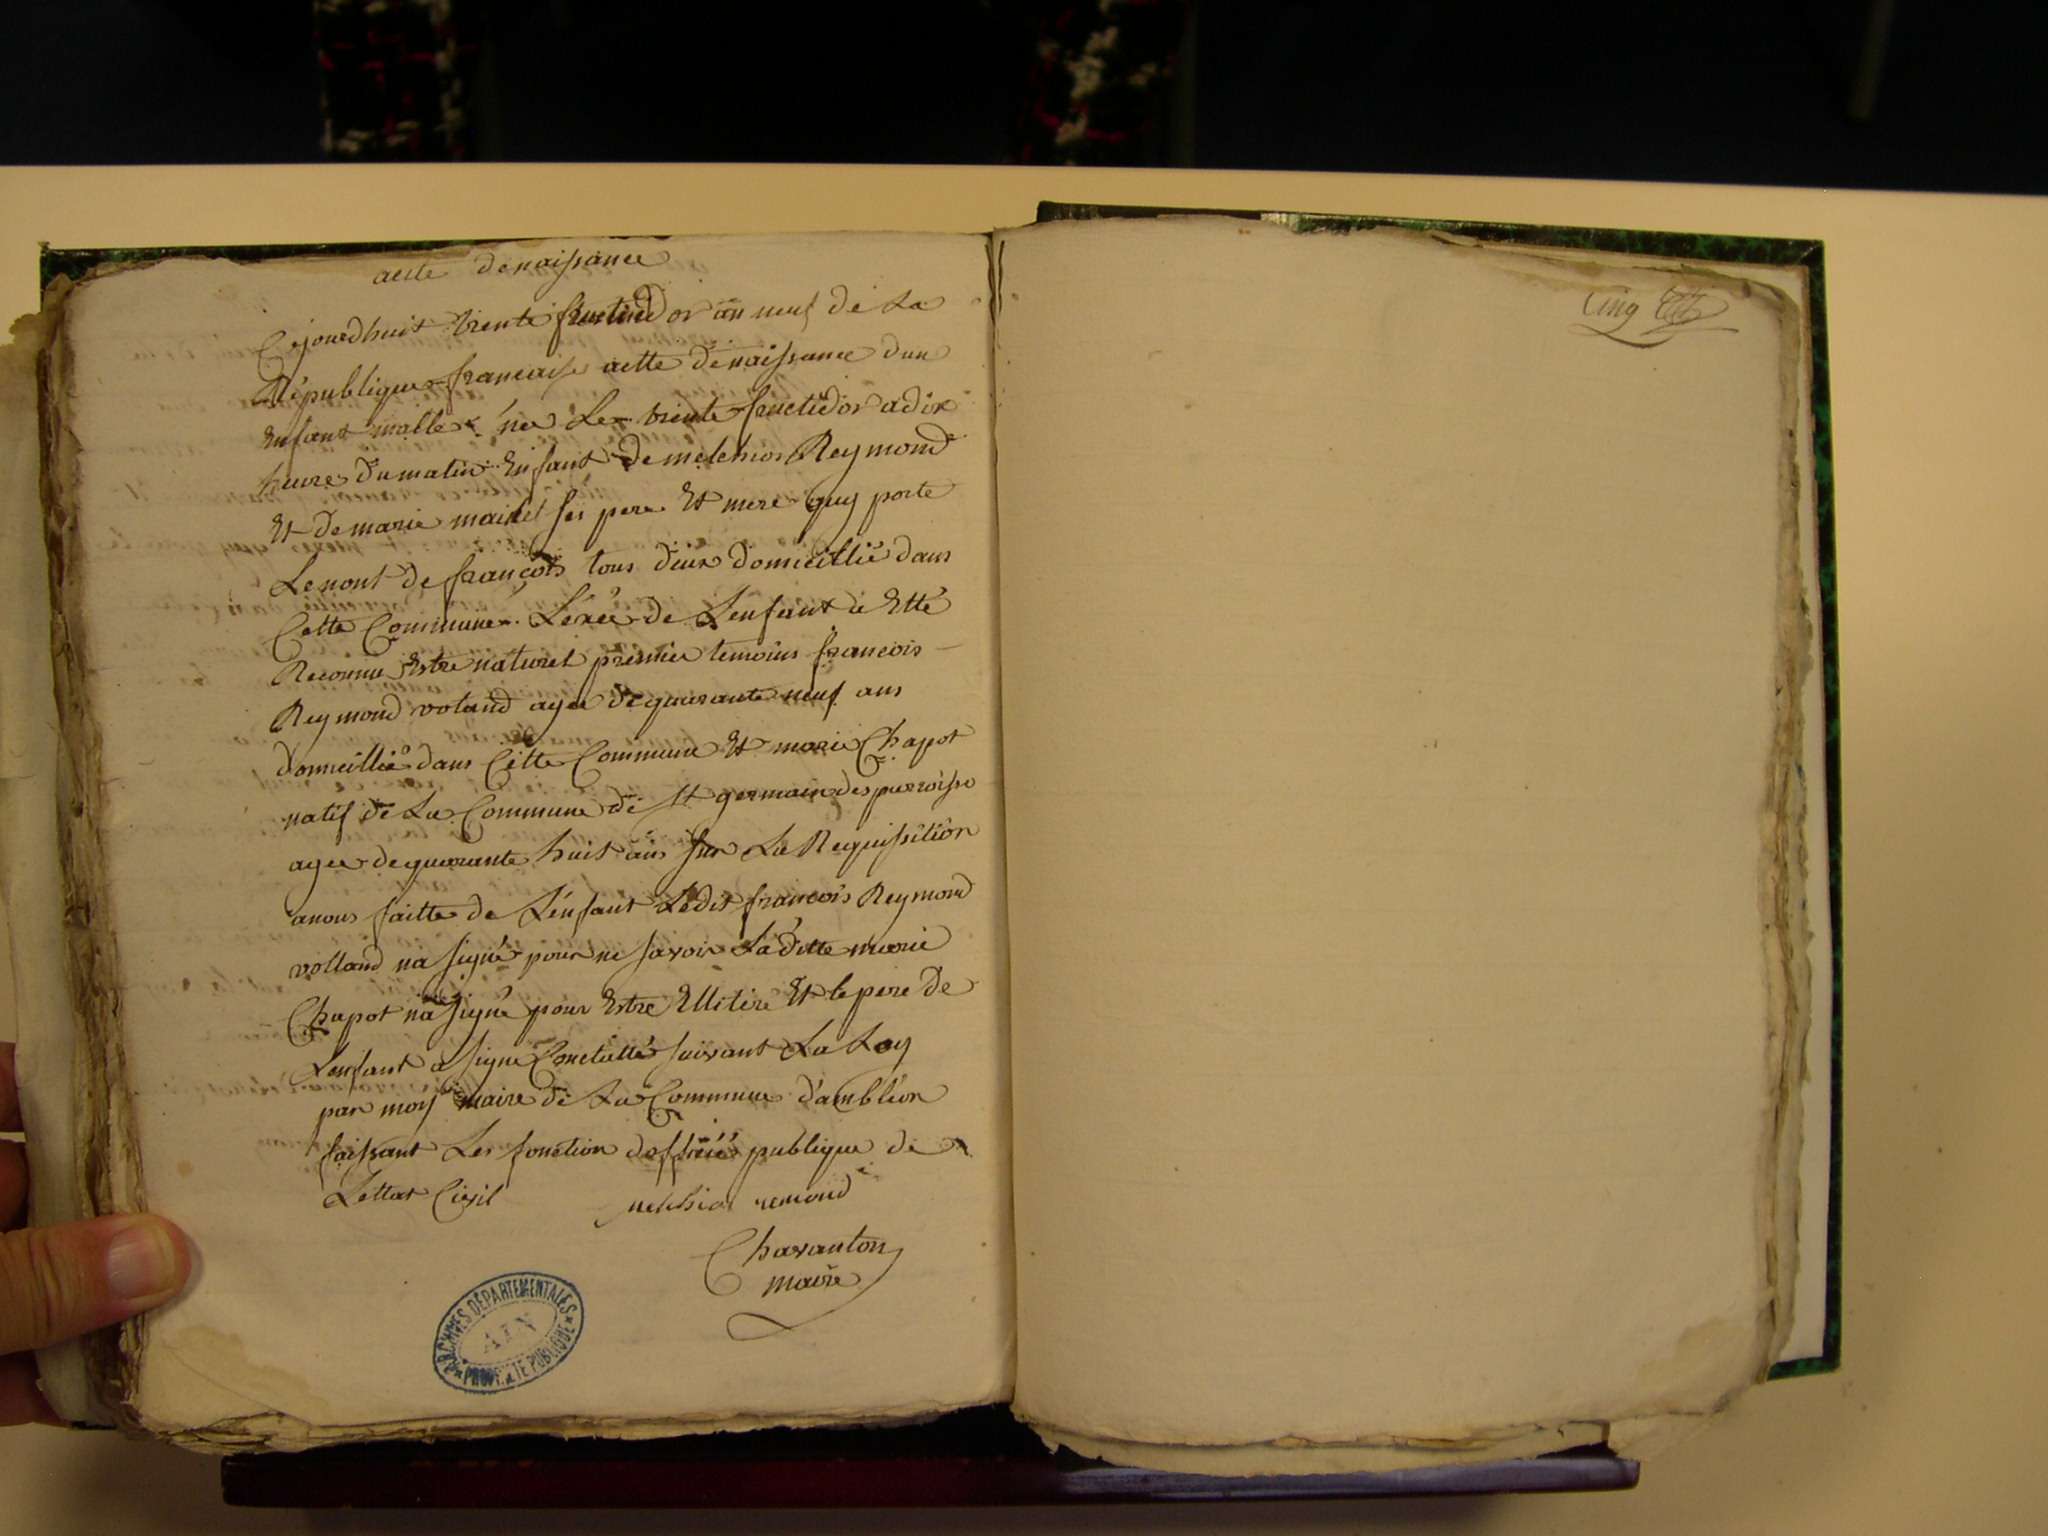 acte de naissance
Cejourdhuit trente fructidor an neuf de La
République francaise actte de naissance dun
Enfant malle née Le trente fructidor a dix
heure du matin Enfant de melchior Reymond
Et de marie ses pere Et mere quy porte
Le nont de françois tous deux domicillié dans
Cette Commune. Le de Lenfant à Etté
Reconnu Estre naturel premier temoins francois
Reymond voland agée de quarante neuf ans
domicillié dans Cette Commune Et marie Chapot
natif de La Commune de St germain des parroisse
agée de quarante huit ans sur La Requissition
a nous faitte de Lénfant Ledit francois Reymond
volland na signé pour ne savoir La ditte marie
Chapot na signé pour Estre Ellitéré Et le pere de
Lenfant a signé Constatté suivant La Loy
par moy maire de La Commune d'ambléon
faissant Les fonction publique de
Lettat Civil melchior remond
Chavanton
maire
ARCHIVES DÉPARTEMENTALES
AIN
PROPRIÉTÉ PUBLIQUE
Cinq